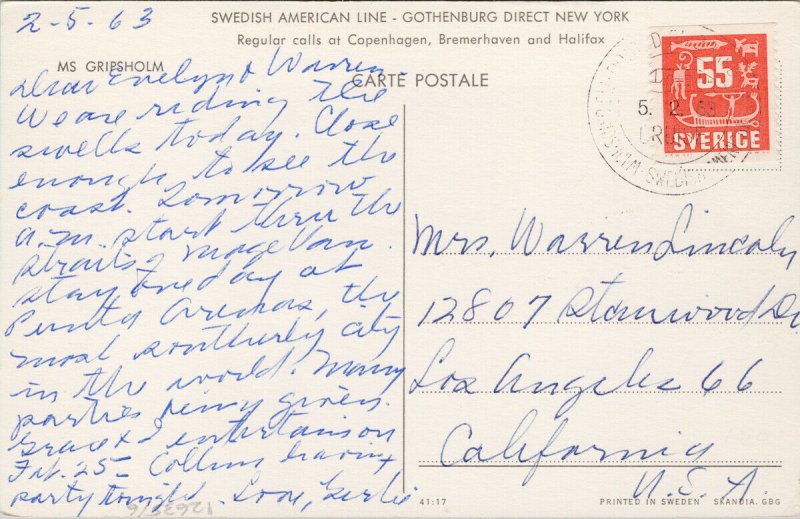 2-5-63
SWEDISH AMERICAN LINE - GOTHENBURG DIRECT NEW YORK
Regular calls at Copenhagen, Bremerhaven and Halifax
MS GRIPSHOLM
CARTE POSTALE
Dear Evelyn & Warren
We are riding the
swells today. Close
enough to see the
coast. Tomorrow
a.m. start thru the
straits of Magellan.
stay one day at
Punta Arenas, the
most southerly city
in the world. Many
parties being given.
Grace & I entertain on
Feb. 25 - Collins having
party tonight. Love, Gertie
55
SVERIGE
5. 2. 63
GRIPSHOLM SWEDISH
Mrs. Warren Lincoln
12807 Stanwood Dr
Los Angeles 66
California
U.S.A.
41:17
PRINTED IN SWEDEN SKANDIA, GBG